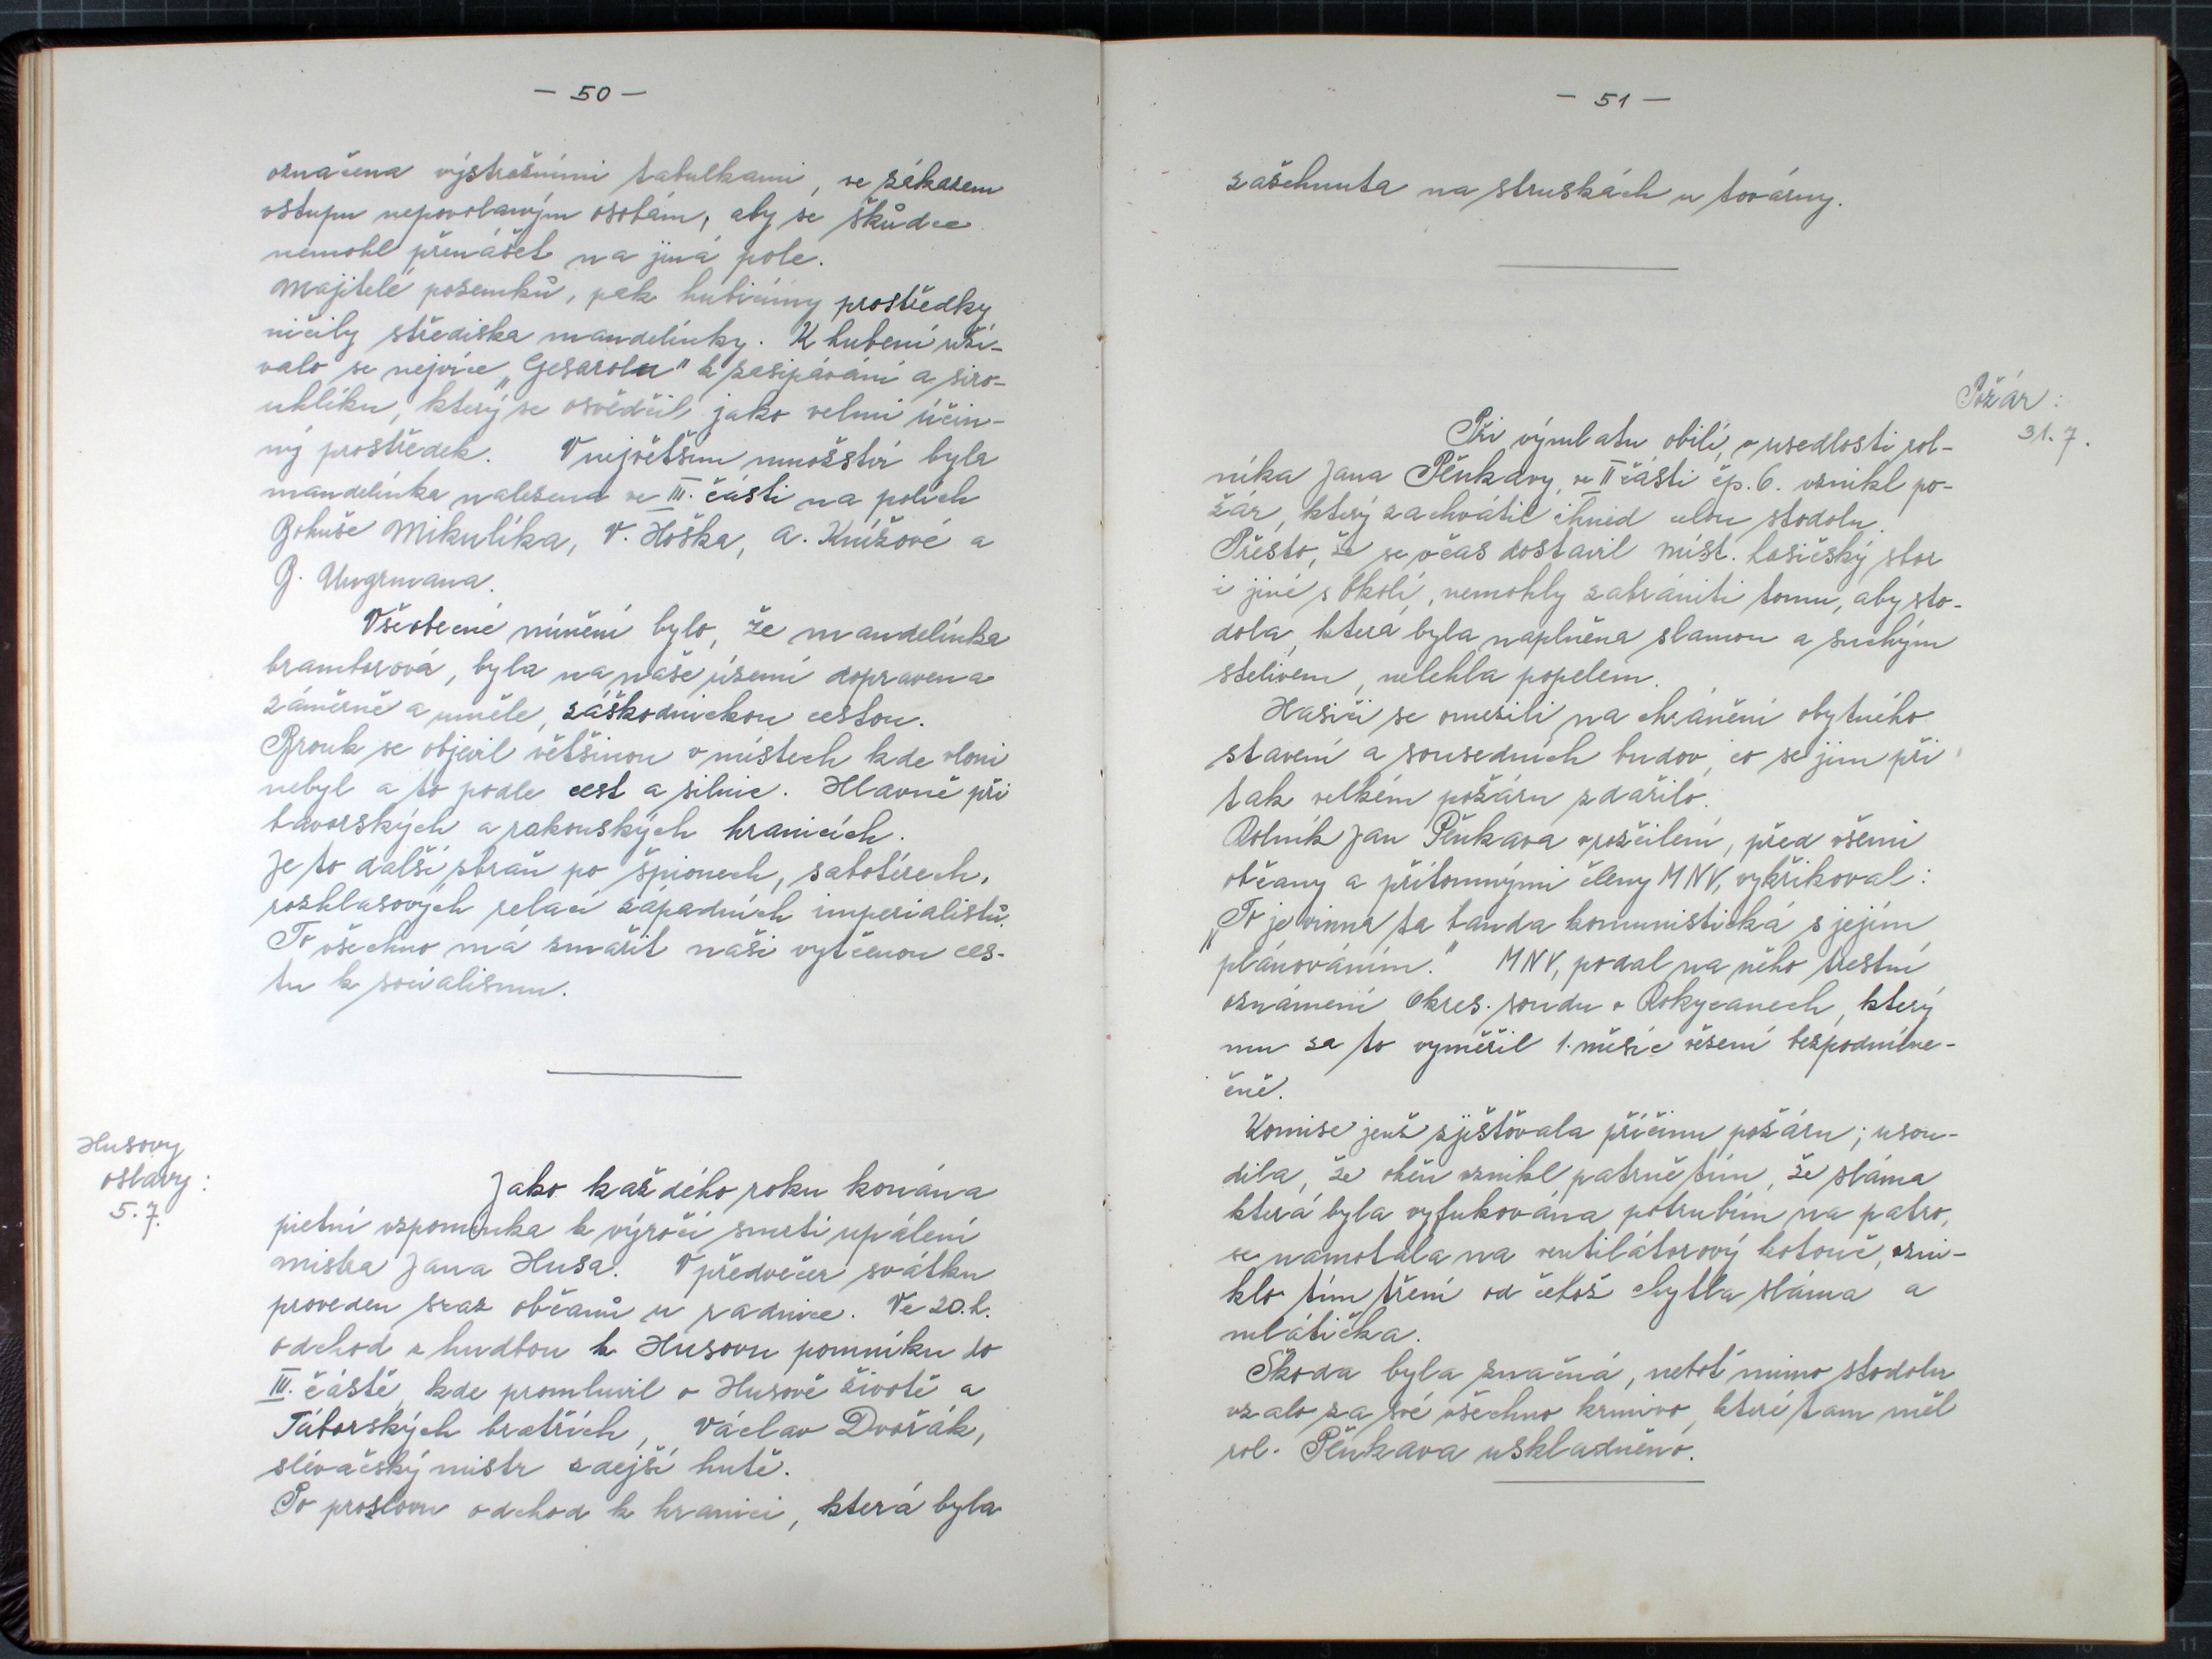 - 50 -
označena výstražními tabulkami, se zákazem
vstupu nepovolaným osobám, aby se škůdce
nemohl přenášet na jiná pole.
Majitelé pozemků, pak hubicímy prostředky
ničily střediska mandelinky. K hubení uží-
valo se nejvíce „Gesarolu" k zasipávání a siro-
uhlíku, který se osvědčil jako velmi účin-
ný prostředek. V největším množství byla
mandelinka nalezena ve III. části na polích
Bohuše Mikulíka, V. Hoška, A. Knížové a
J. Ungrmana.
Všeobecné mínění bylo, že mandelinka
bramborová, byla na naše území dopravena
záměrně a uměle, záškodnickou cestou.
Brouk se objevil většinou v místech kde vloni
nebyl a to podle cest a silnic. Hlavně při
bavorských a rakouských hranicích.
Je to další zbraň po špionech, sabotérech,
rozhlasových relací západních imperialistů.
To všechno má zmařit naši vytčenou ces-
tu k socialismu.
Husovy
oslavy:
5. 7.
Jako každého roku konána
pietní vzpomínka k výročí smrti upálení
mistra Jana Husa. V předvečer svátku
proveden sraz občanů u radnice. Ve 20. h.
odchod s hudbou k Husovu pomníku do
III. částě, kde promluvil o Husově životě a
Táborských bratřích, Václav Dvořák,
slévačský mistr zdejší hutě.
Po proslovu odchod k hranici, která byla
- 51 -
zašehnuta na struskách u továrny.
Požár:
31. 7.
Při výmlatu obilí, v usedlosti rol-
níka Jana Pěnkavy, ve II části čp. 6. vznikl po-
žár, který zachvátil ihned celou stodolu.
Přesto, že se včas dostavil míst. hasičský sbor
i jiné s okolí, nemohly zabrániti tomu, aby sto-
dola, která byla naplněna slamou a suchým
stelivem, nelehla popelem.
Hasiči se omezili na chránění obytného
stavení a sousedních budov, co se jim při
tak velkém požáru zdařilo.
Rolník Jan Pěnkava v rozčilení, před všemi
občany a přítomnými členy MNV, vykřikoval:
„To je vinna ta banda komunistická s jejím
plánováním." MNV, podal na něho trestní
oznámení Okres. soudu v Rokycanech, který
mu za to vyměřil 1. měsíc vězení bezpodmíne-
čně.
Komise jenž zjišťovala příčinu požáru; usou-
dila, že oheň vznikl patrně tím, že sláma
která byla vyfukována potrubím na patro,
se namotala na ventilátorový kotouč, vzni-
klo tím tření od čehož chytla sláma a
mlátička.
Škoda byla značná, neboť mimo stodolu
vzalo za své všechno krmivo, které tam měl
rol. Pěnkava uskladněno.